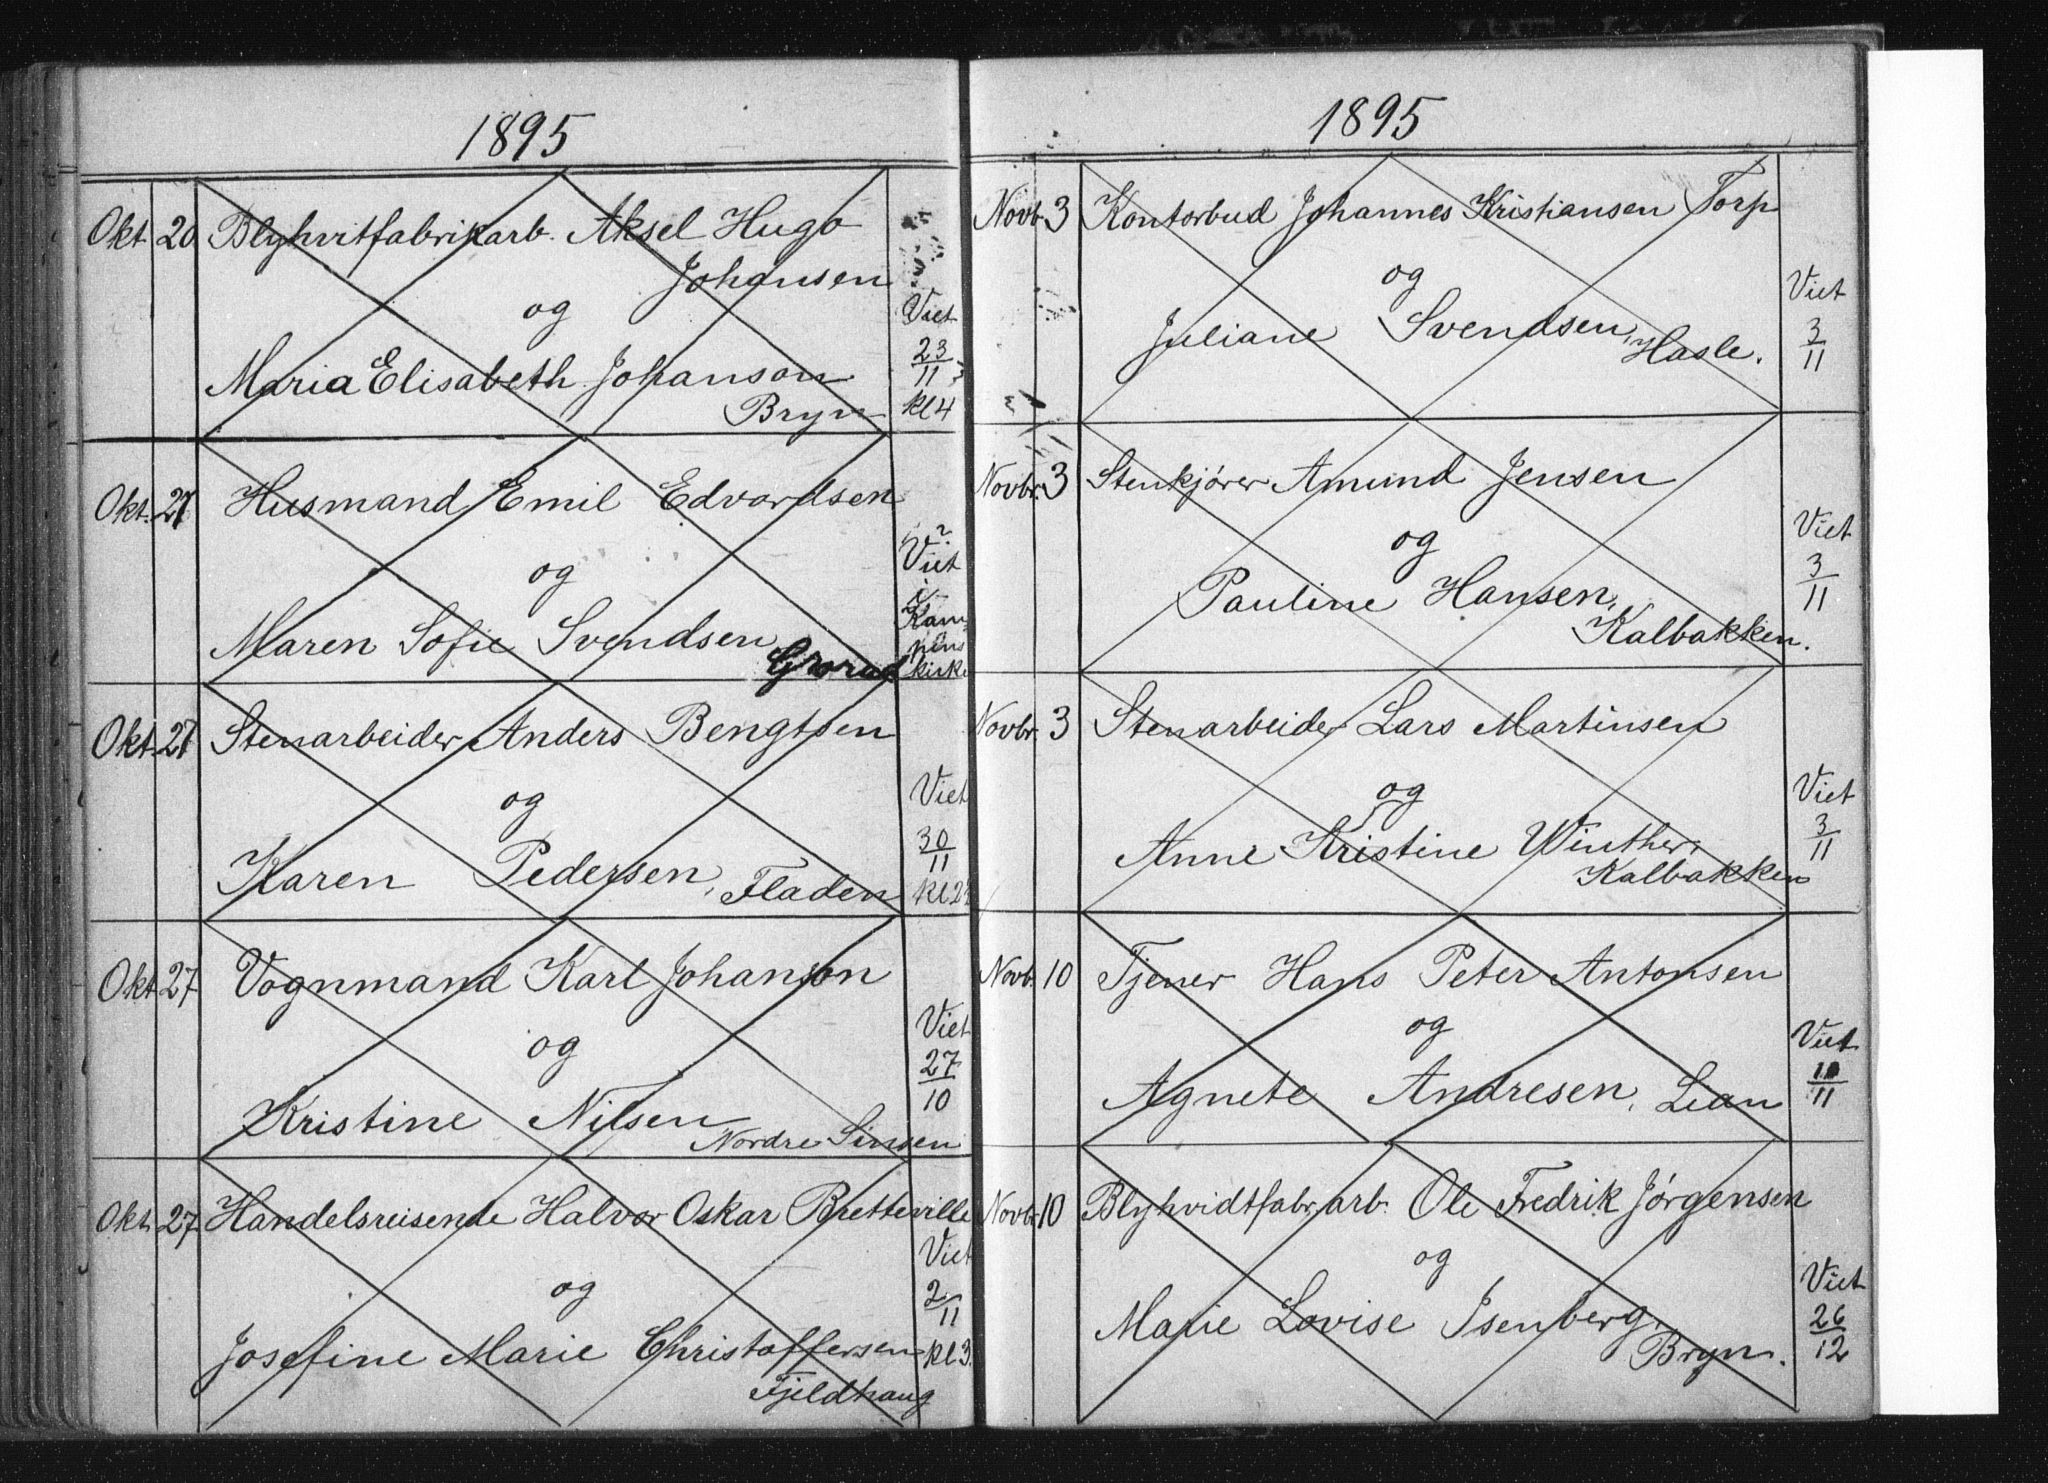 1895
Okt. 20 Blyhvitfabrikarb. Aksel Hugo
Johansen
og
Maria Elisabeth Johanson
Bryn
Viet
23/11
kl 4
Okt. 27 Husmand Emil Edvardsen
og
Maren Sofie Svendsen
Grorud
Viet
i
Kam
pens
kirke
Okt. 27 Stenarbeider Anders Bengtsen
og
Karen Pedersen, Fladen
Viet
30/11
Okt. 27 Vognmand Karl Johanson
og
Kristine Nilsen
Nordre Sinsen
Viet
27/10
Okt. 27 Handelsreisende Halvor Oskar Bretteville
og
Josefine Marie Christoffersen
Fjeldhaug
Viet
2/11
kl 3
1895
Novb. 3 Kontorbud Johannes Kristiansen Torp
og
Juliane Svendsen, Hasle.
Viet
3/11
Novbr. 3 Stenkjører Amund Jensen
og
Pauline Hansen,
Kalbakken.
Viet
3/11
Novbr. 3 Stenarbeider Lars Martinsen
og
Anne Kristine Winther,
Kalbakken
Viet
3/11
Novb. 10 Tjener Hans Peter Antonsen
og
Agnete Andresen, Lian
Viet
10/11
Novbr. 10 Blyhvidtfabr.arb. Ole Fredrik Jørgensen
og
Marie Lovise Isenberg,
Bryn.
Viet
26/12